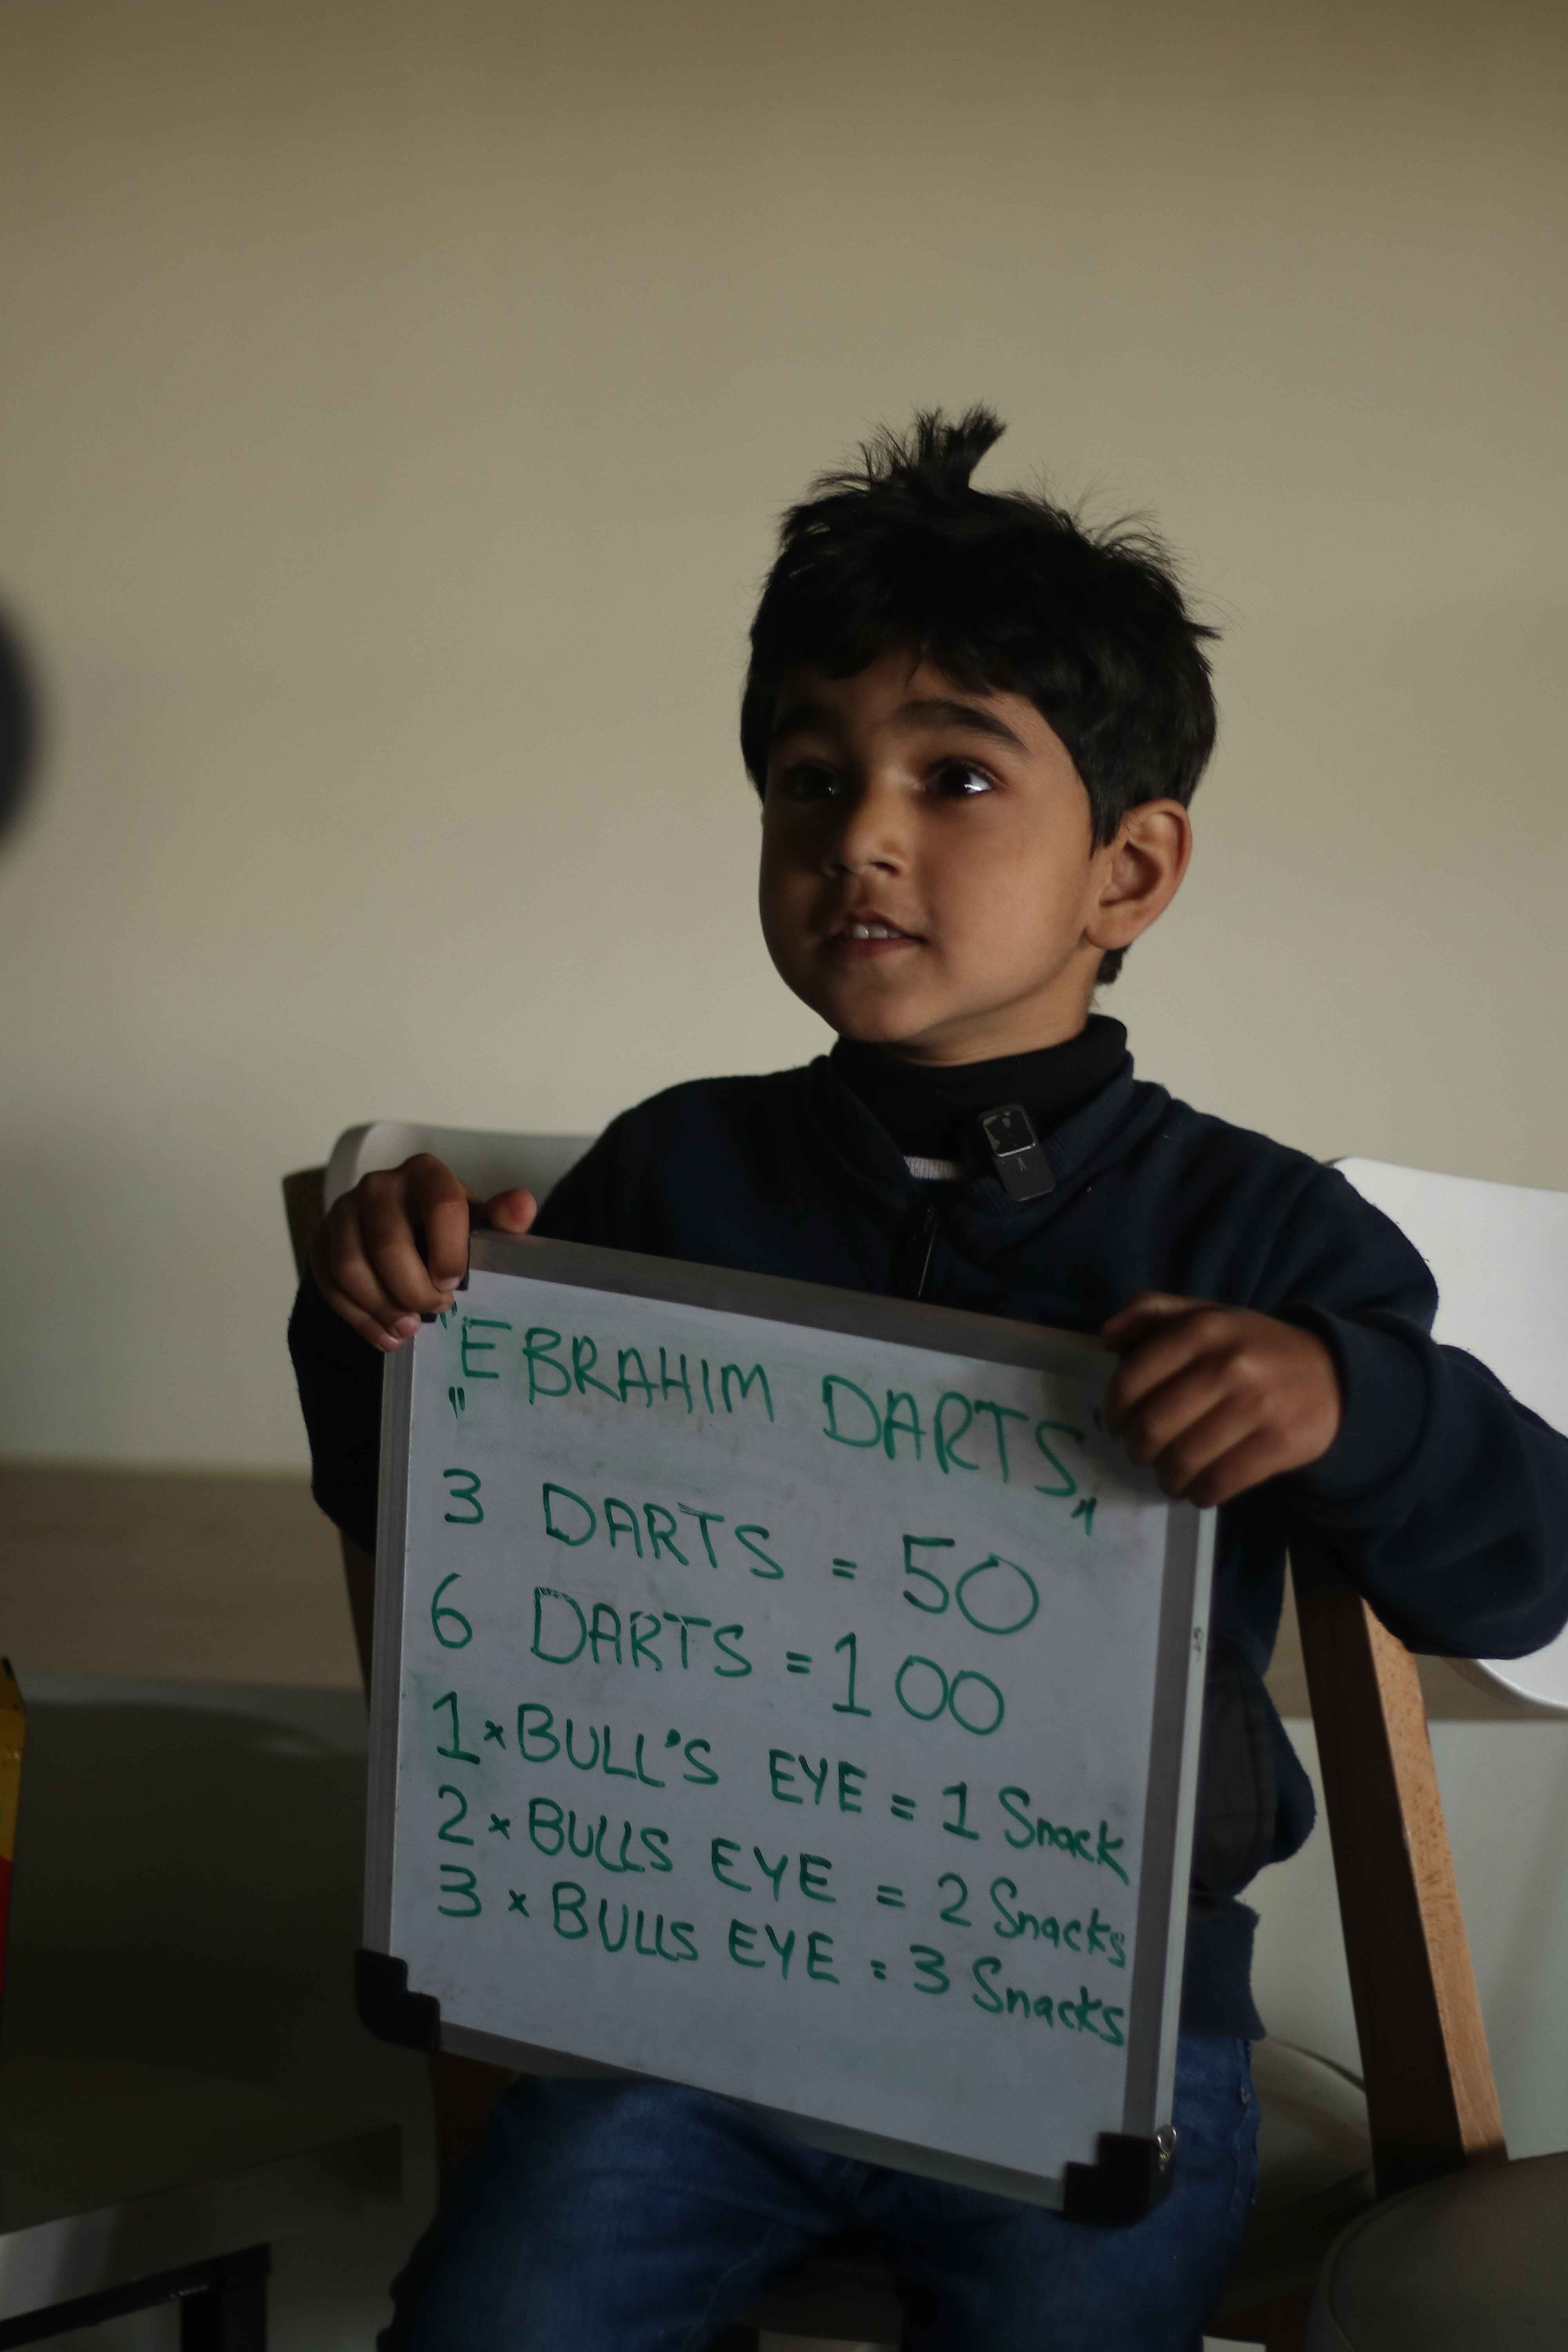 "EBRAHIM DARTS"
3 DARTS = 50
6 DARTS = 100
1 x BULL'S EYE = 1 Snack
2 x BULLS EYE = 2 Snacks
3 x BULLS EYE = 3 Snacks